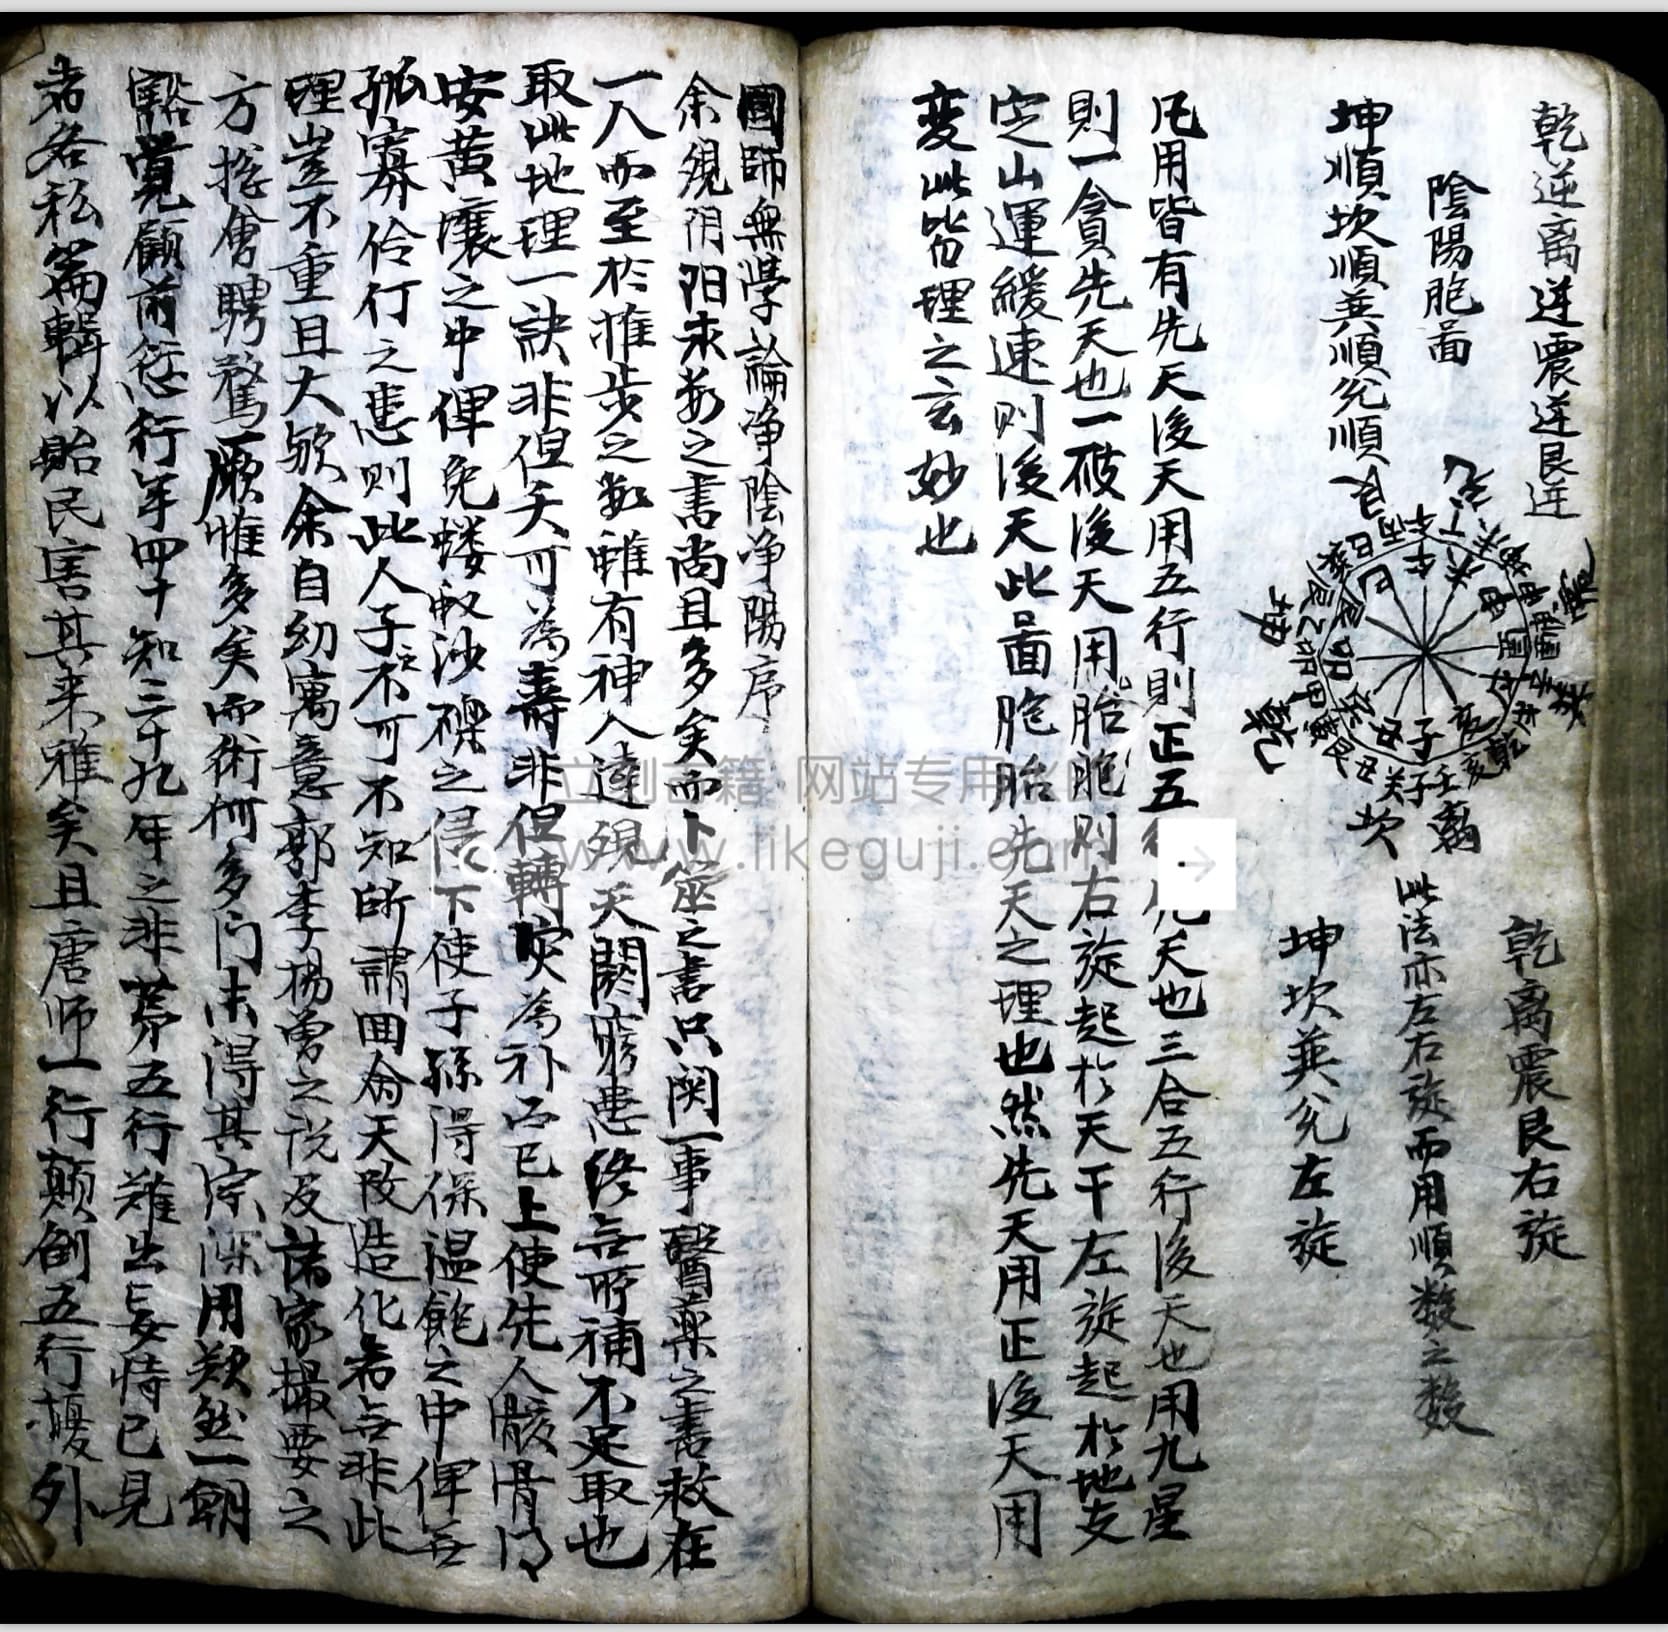 乾逆离逆震逆艮逆
陰陽胞啚
坤順坎順巽順兊順
乾離震艮右旋
此法亦左右旋而用順数之数
坤坎巽兊左旋
凡用皆有先天後天用五行則正五行先天也三合五行後天也用九星
則一貪先天也一破後天用胎胞則右旋起於天干左旋起於地支
定山運緩速则後天此啚胞胎先天之理也然先天用正後天用
変此皆理之玄妙也
國師無學論净陰净陽序
余覌阴阳求数之書尚且多矣而卜筮之書只関一事醫藥之書救在
一人而至於推步之数雖有神人達覌天闕窮患終無所補不足取也
取此地理一訣非但夭可為壽非但轉灾為祚而已上使先人骸骨得
安黄壤之中俾免螻蚁沙礫之侵下使子孫得保温飽之中俾無
孤寡伶仃之患則此人子之不可不知所謂回侖天改造化者無非此
理豈不重且大欤余自幼寓意郭李楊曾之說及諸家撮要之
方搃會騁騖厥惟多矣而術何多门未得其宗深用歎然一朝
豁覺顧前愆行年四十知三十九年之非葬五行難出妄恃已見
者各私篇輯以貽民害其来雅矣且唐师一行颠倒五行擾外
立刻古籍 网站专用
www.likeguji.com